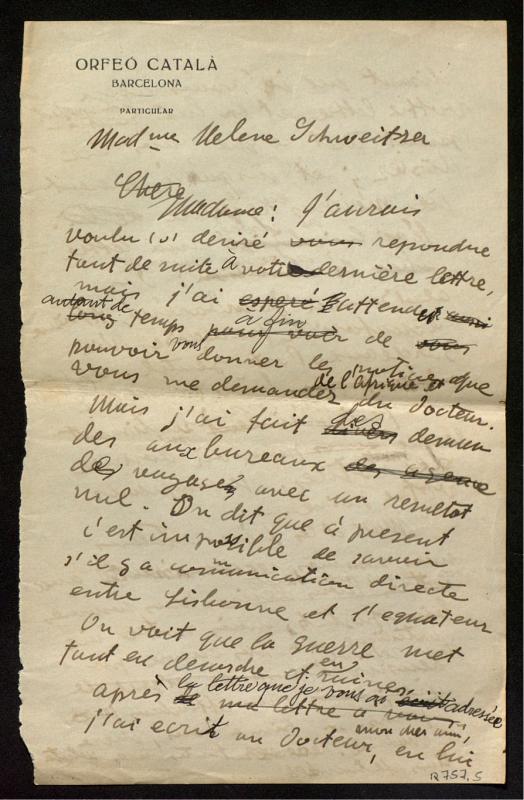 ORFEÓ CATALÀ
BARCELONA
PARTICULAR
Madme Helene Schweitzer
Chere
Madame: J'aurais
voulu (s) desiré vous repondre
tout de suite à votre dernière lettre,
mais j'ai esperé attendre
autant de
long temps pour voir à fin de vous
pouvoir vous donner les notices que
vous me demandez de l'afrique et du Docteur.
Mais j'ai fait divers des deman
des aux bureaux des agence
des voyages avec un resultat
nul. On dit que à present
c'est impossible de savoir
s'il y a communication directe
entre Lisbonne et l'equateur
On voit que la guerre met
tout en desordre et en ruines.
après la lettre que je vous ai ecrit adressée
ma lettre a vous,
j'ai ecrit au Docteur, mon cher ami, en lui
R 757.5